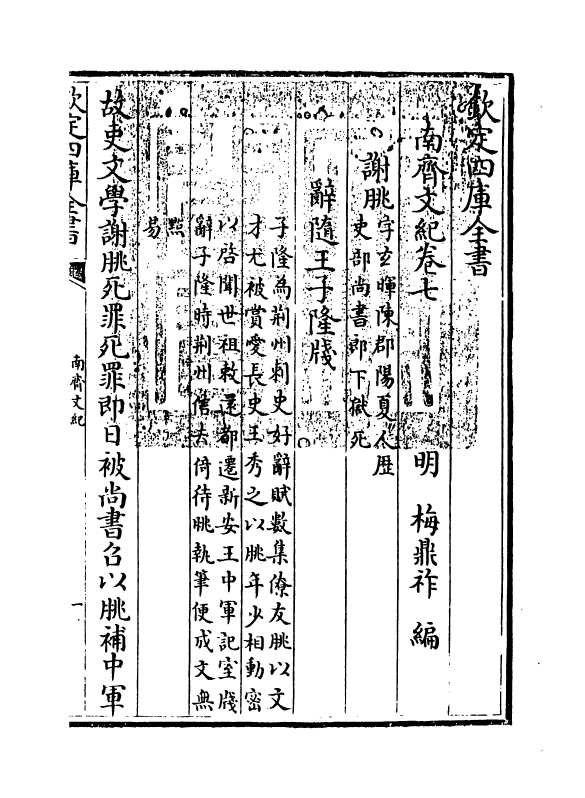 欽定四庫全書
南齊文紀卷七
明 梅鼎祚 編
謝朓字玄暉陳郡陽夏人歴
吏部尚書郎下獄死
辭隨王子隆牋
子隆為荆州刺史好辭賦數集僚友朓以文
才尤被賞愛長史王秀之以朓年少相動密
以啓聞世祖敕還都遷新安王中軍記室牋
辭子隆時荆州信去倚待朓執筆便成文無
點
易
故吏文學謝朓死罪死罪即日被尚書召以朓補中軍
欽定四庫全書
南齊文紀
一